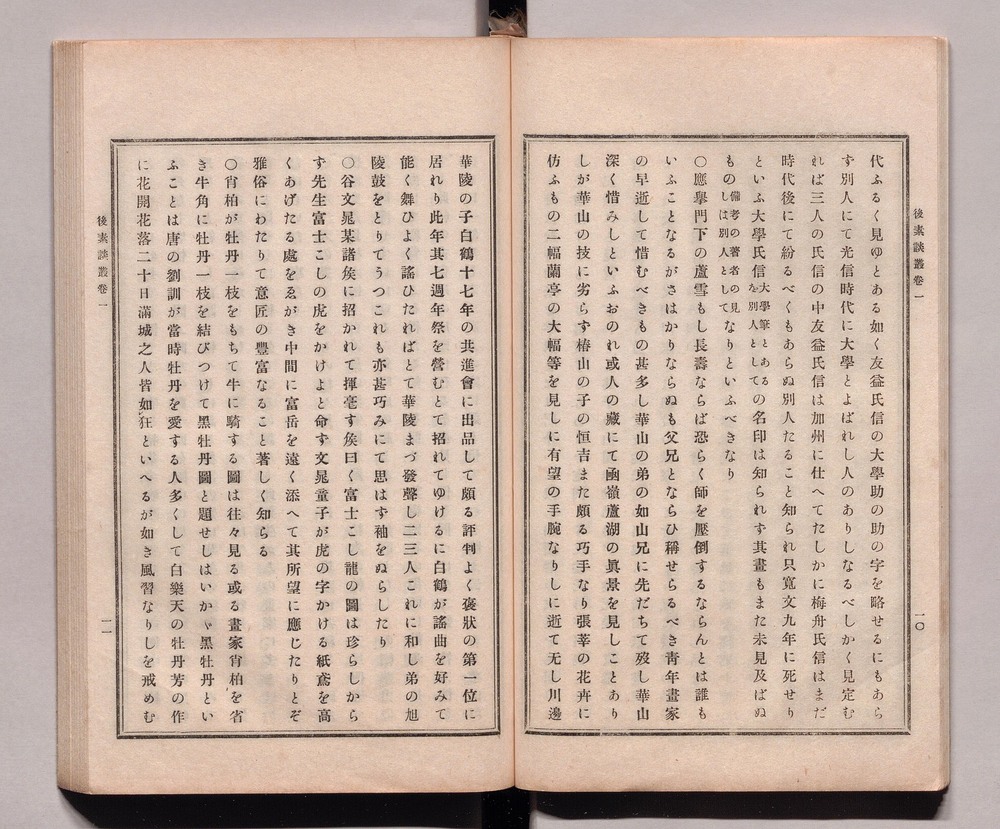 後素談叢卷一
一〇
代ふるく見ゆとある如く友益氏信の大學助の助の字を略せるにもあら
す別人にて光信時代に大學とよばれし人のありしなるべしかく見定む
れば三人の氏信の中友益氏信は加州に仕へてたしかに梅舟氏信はまだ
時代後にて紛るべくもあらぬ別人たること知られ只寛文九年に死せり
といふ大學氏信大學筆とあるを別人としての名印は知られす其畫もまた未見及ばぬ
もの備考の著者の見しは別人としてなりといふべきなり
〇應擧門下の蘆雪もし長壽ならば恐らく師を壓倒するならんとは誰も
いふことなるがさはかりならぬも父兄とならひ稱せらるべき靑年畫家
の早逝して惜むべきもの甚多し華山の弟の如山兄に先だちて歿し華山
深く惜みしといふおのれ或人の藏にて凾嶺蘆湖の眞景を見しことあり
しが華山の技に劣らす椿山の子の恒吉また頗る巧手なり張莘の花卉に
仿ふもの二幅蘭亭の大幅等を見しに有望の手腕なりしに逝て无し川邊
華陵の子白鶴十七年の共進會に出品して頗る評判よく褒狀の第一位に
居れり此年其七週年祭を營むとて招れてゆけるに白鶴が謠曲を好みて
能く舞ひよく謠ひたればとて華陵まづ發聲し二三人これに和し弟の旭
陵鼓をとりてうつこれも亦甚巧みにて思はす袖をぬらしたり
〇谷文晁某諸侯に招かれて揮毫す侯曰く富士こし龍の圖は珍らしから
す先生富士こしの虎をかけよと命す文晁童子が虎の字かける紙鳶を高
くあげたる處をゑがき中間に富岳を遠く添へて其所望に應じたりとぞ
雅俗にわたりて意匠の豐富なること著しく知らる
〇肖柏が牡丹一枝をもちて牛に騎する圖は往々見る或る畫家肖柏を省
き牛角に牡丹一枝を結びつけて黑牡丹圖と題せしはいかゞ黑牡丹とい
ふことは唐の劉訓が當時牡丹を愛する人多くして白樂天の牡丹芳の作
に花開花落二十日滿城之人皆如狂といへるが如き風習なりしを戒めむ
後素談叢卷一
一一